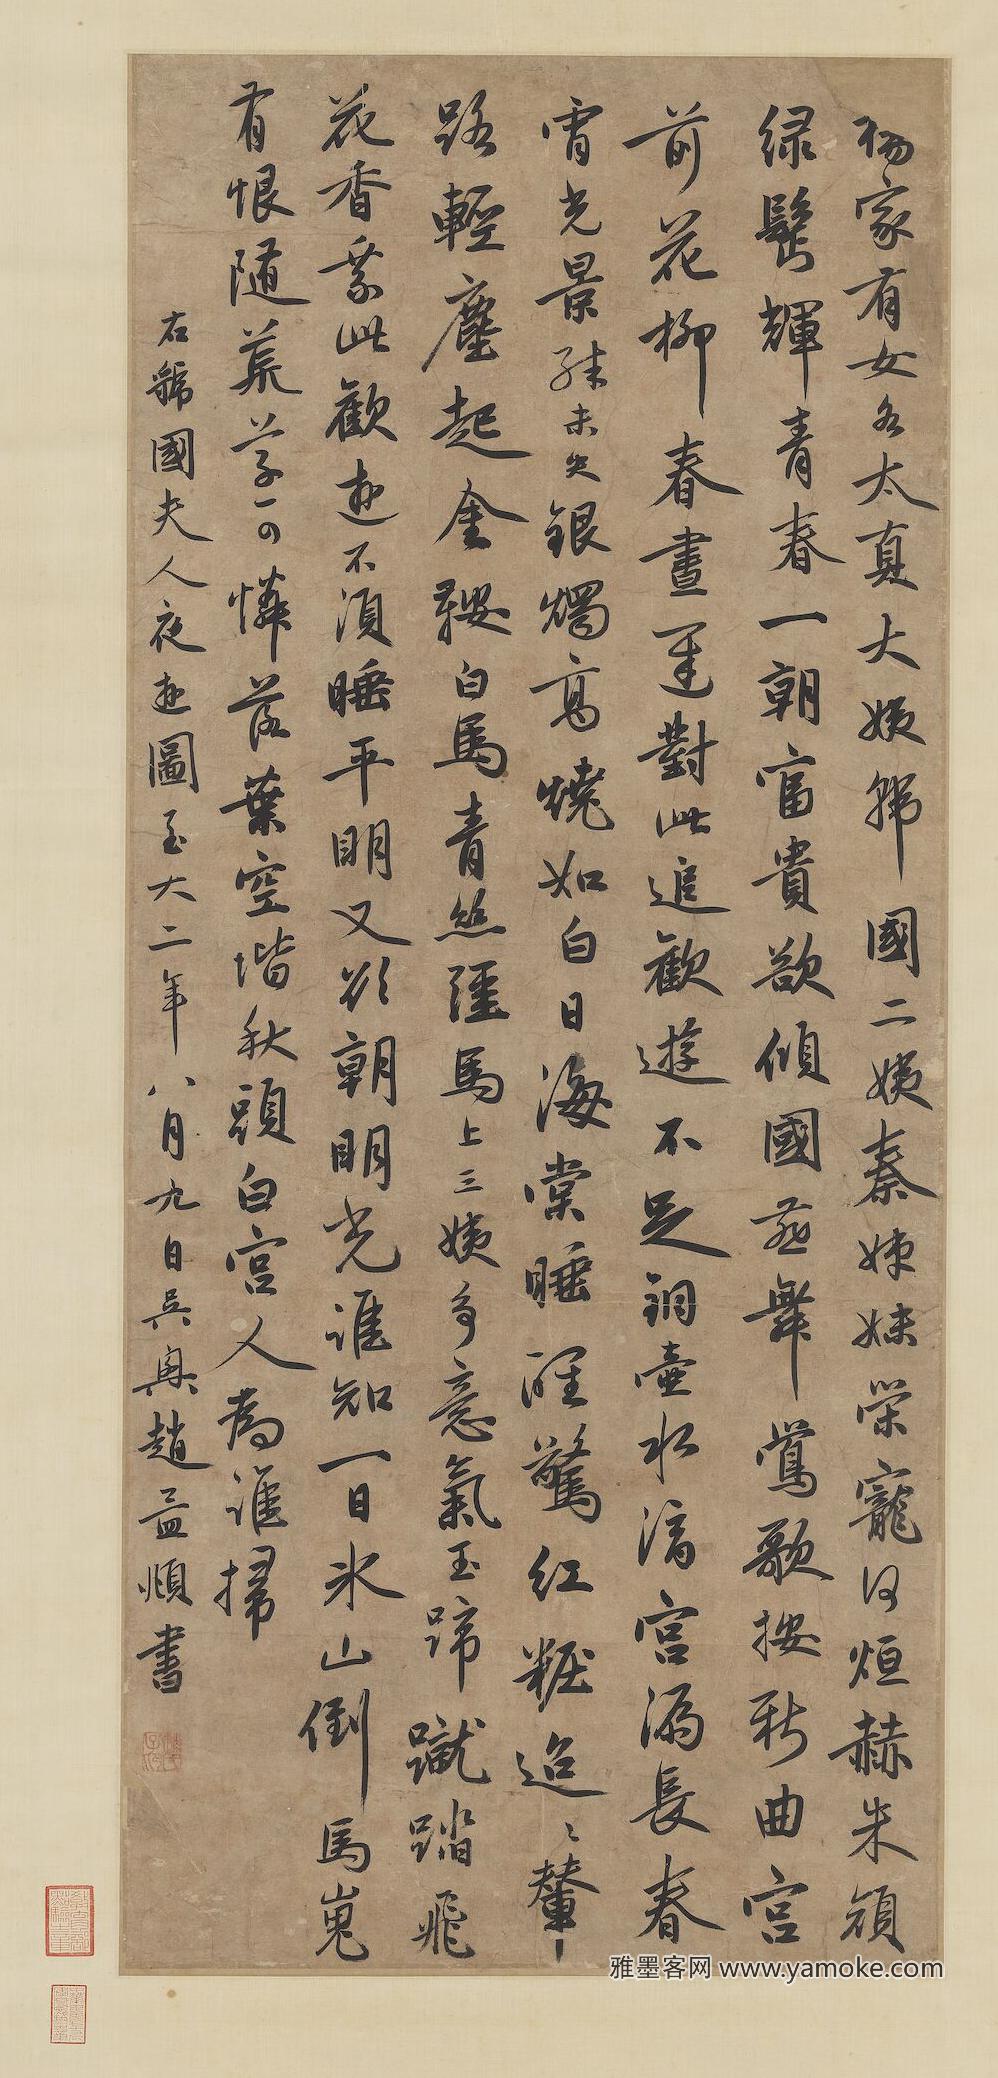 楊家有女名太真大姨號國二姨秦姊妹榮寵何烜赫朱顏
緑鬢輝青春一朝富貴欲傾國燕舞鶯歌按新曲宮
前花柳春晝遲對此追歡遊不足銅壺水滴宮漏長春
宵光景殊未央銀燭高燒如白日海棠睡醒驚紅粧迢〻輦
路輕塵起金鞍白馬青絲韁馬上三姨多意氣玉蹄蹴踏飛
花香乘此歡遊不須睡平明又欲朝明光誰知一日冰山倒馬嵬
有恨隨荒草可憐落葉空堦秋頭白宮人為誰掃
右虢國夫人夜遊圖至大二年八月九日吳興趙孟頫書
雅墨客网 www.yamoke.com